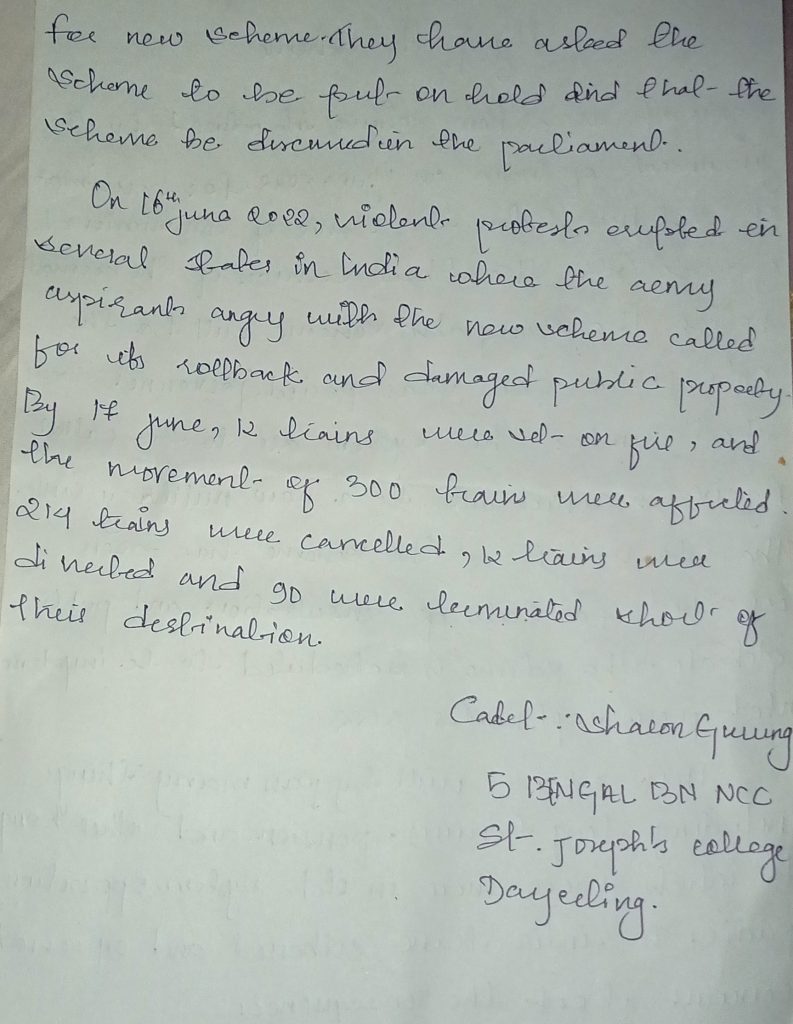 for new scheme. They have asked the
scheme to be put on hold and that the
scheme be discussed in the parliament.
On 16th june 2022, violent protests erupted in
several states in India where the army
aspirants angry with the new scheme called
for its rollback and damaged public property.
By 17 june, 12 trains were set on fire, and
the movement of 300 trains were affected.
214 trains were cancelled, 12 trains were
diverted and 90 were terminated short of
their destination.
Cadet : Sharon Gurung
5 BENGAL BN NCC
St. Joseph's college
Darjeeling.